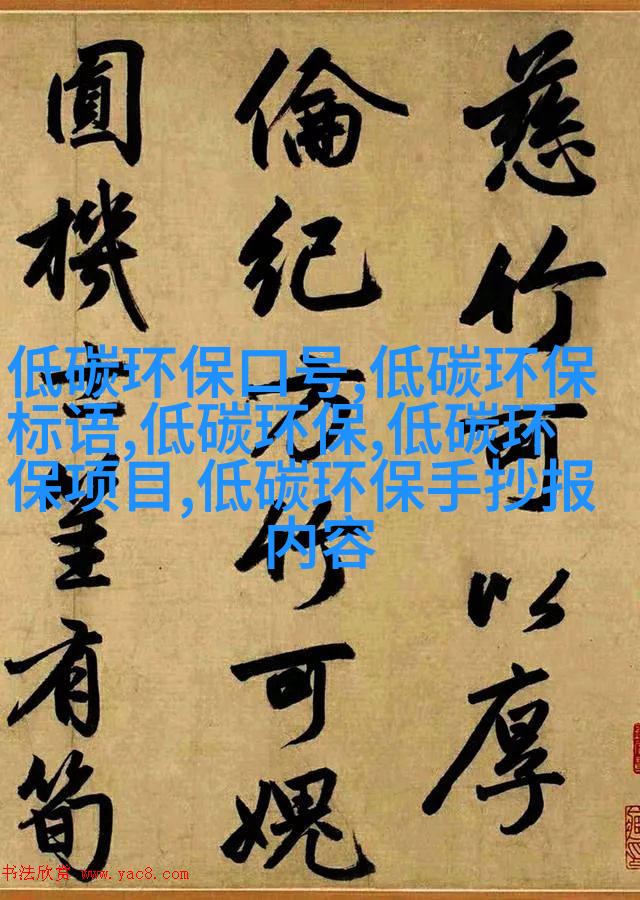 慈竹可以厚
倫紀方竹可愧
圓機士有筍
低碳环保口号,低碳环保
标语,低碳环保,低碳环
保项目,低碳环保手抄报
内容
书法欣赏 www.yac8.com